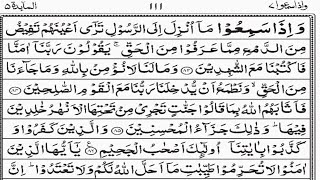 واذاسمعوا٧ ١١١ المآىدة٥
وَاِذَا سَمِعُوْا مَاۤ اُنْزِلَ اِلَى الرَّسُوْلِ تَرٰۤى اَعْيُنَهُمْ تَفِيْضُ
مِنَ الدَّمْعِ مِمَّا عَرَفُوْا مِنَ الْحَقِّ ۚ يَقُوْلُوْنَ رَبَّنَاۤ اٰمَنَّا
فَاكْتُبْنَا مَعَ الشّٰهِدِيْنَ ﴿۸۳﴾ وَمَا لَنَا لَا نُؤْمِنُ بِاللّٰهِ وَمَا جَآءَنَا
مِنَ الْحَقِّ ۙ وَنَطْمَعُ اَنْ يُّدْخِلَنَا رَبُّنَا مَعَ الْقَوْمِ الصّٰلِحِيْنَ ﴿۸۴﴾
فَاَثَابَهُمُ اللّٰهُ بِمَا قَالُوْا جَنّٰتٍ تَجْرِيْ مِنْ تَحْتِهَا الْاَنْهٰرُ خٰلِدِيْنَ
فِيْهَا ۚ وَذٰلِكَ جَزَآءُ الْمُحْسِنِيْنَ ﴿۸۵﴾ وَالَّذِيْنَ كَفَرُوْا وَ
كَذَّبُوْا بِاٰيٰتِنَاۤ اُولٰٓئِكَ اَصْحٰبُ الْجَحِيْمِ ﴿۸۶﴾ يٰۤاَيُّهَا الَّذِيْنَ
اٰمَنُوْا لَا تُحَرِّمُوْا طَيِّبٰتِ مَاۤ اَحَلَّ اللّٰهُ لَكُمْ وَلَا تَعْتَدُوْا ۚ اِنَّ